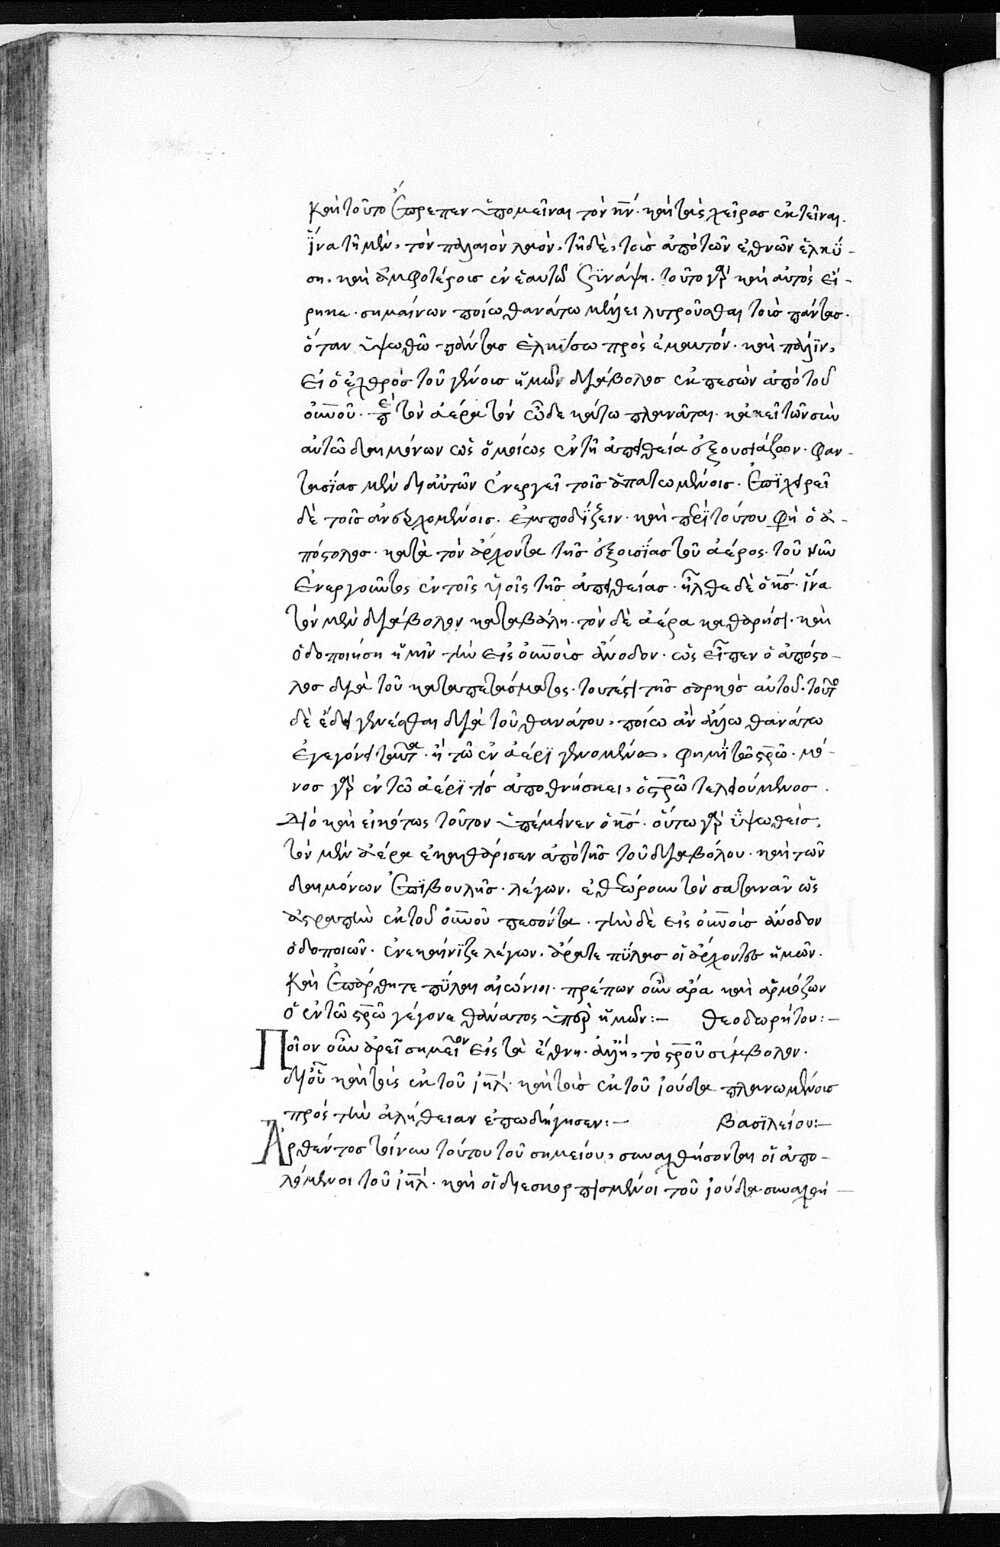 καὶ τοῦτο ἔπρεπεν ὑπομεῖναι τὸν κ̅ν̅· καὶ τὰς χεῖρας ἐκτεῖναι.
ἵνα τῇ μὲν, τὸν παλαιὸν λαὸν, τῇ δὲ, τοὺς ἀπὸ τῶν ἐθνῶν ἑλκύ-
ση, καὶ ἀμφοτέροις ἐν ἑαυτῶ συνάψη. τοῦτο γὰρ καὶ αὐτὸς εἴ-
ρηκε. σημαίνων ποίω θανάτω μέλλει λυτροῦσθαι τοὺς πάντας.
ὅταν ὑψωθῶ πάντας ἑλκύσω πρὸς ἐμαυτόν. καὶ πάλιν,
εἰ ὁ ἐχθρὸς τοῦ γένους ἡμῶν διάβολος ἐκπεσὼν ἀπὸ τοῦ
οὐ̅νοῦ. περὶ τὸν ἀέρα τὸν ὧδε κάτω πλανᾶται. κἀκεῖ τῶν σὺν
αὐτῶ δαιμόνων ὡς ὁμοίως ἐν τῇ ἀπειθεία ἐξουσιάζων. φαν-
τασίας μὲν δι αὐτῶν ἐνεργεῖ τοῖς ἀπατωμένοις. ἐπιχειρεῖ
δὲ τοῖς ἀνερχομένοις. ἐμποδίζειν. καὶ περὶ τούτου φη ὁ ἀ-
πόστολος. κατὰ τὸν ἄρχοντα τῆς ἐξουσίας τοῦ ἀέρος. τοῦ νῦν
ἐνεργοῦντος ἐν τοῖς υἱοῖς τῆς ἀπειθείας. ἦλθε δὲ ὁ κ̅ς̅. ἵνα
τὸν μὲν διάβολον καταβάλη. τὸν δὲ ἀέρα καθαρίση. καὶ
ὁδοποιήση ἡμῖν τὴν εἰς οὐ̅νοὺς ἄνοδον. ὡς εἶπεν ὁ ἀπόστο-
λος διὰ τοῦ καταπετάσματος. τουτέστι τῆς σαρκὸς αὐτοῦ. τοῦτο
δὲ ἔδει γενέσθαι διὰ τοῦ θανάτου, ποίω ἂν ἄλλω θανάτω
ἐγεγόνει ταῦτα. ἢ τῶ ἐν ἀέρι γενομένω, φημὶ τῶ σ̅ρῶ. μό-
νος γὰρ ἐν τῶ ἀέρι τὶς ἀποθνήσκει, ὁ σ̅ρῶ τελειούμενος.
Διὸ καὶ εἰκότως τοῦτον ὑπέμεινεν ὁ κ̅ς̅. οὕτω γὰρ ὑψωθεὶς,
τὸν μὲν ἀέρα ἐκαθάρισεν ἀπὸ τῆς τοῦ διαβόλου. καὶ τῶν
δαιμόνων ἐπιβουλῆς. λέγων. ἐθεώρουν τὸν σατανᾶν ὡς
ἀστραπὴν ἐκ τοῦ οὐ̅νοῦ πεσόντα. τὴν δὲ εἰς οὐ̅νοὺς ἄνοδον
ὁδοποιῶν. ἐνεκαίνιζε λέγων. ἄρατε πύλας οἱ ἄρχοντες ὑμῶν.
καὶ ἐπάρθητε πύλαι αἰώνιοι. πρέπων οὖν ἄρα καὶ ἁρμόζων
ὁ ἐν τῶ σ̅ρῶ γέγονε θάνατος ὑπὲρ ἡμῶν:— θεοδωρήτου:—
Ποῖον οὖν ἀρεῖ σημεῖον εἰς τὰ ἔθνη. ἀλλ' ἢ, τὸ σ̅ροῦ σύμβολον.
δι οὗ καὶ τοὺς ἐκ τοῦ ἰ̅η̅λ̅. καὶ τοὺς ἐκ τοῦ ἰούδα πλανωμένους
πρὸς τὴν ἀλήθειαν ἐποδήγησεν:— βασϊλείου:—
Ἀρθέντος τοίνυν τούτου τοῦ σημείου, συναχθήσονται οἱ ἀπο-
λόμενοι τοῦ ἰ̅η̅λ̅. καὶ οἱ διεσπαρπισμένοι τοῦ ἰούδα συναχθή-